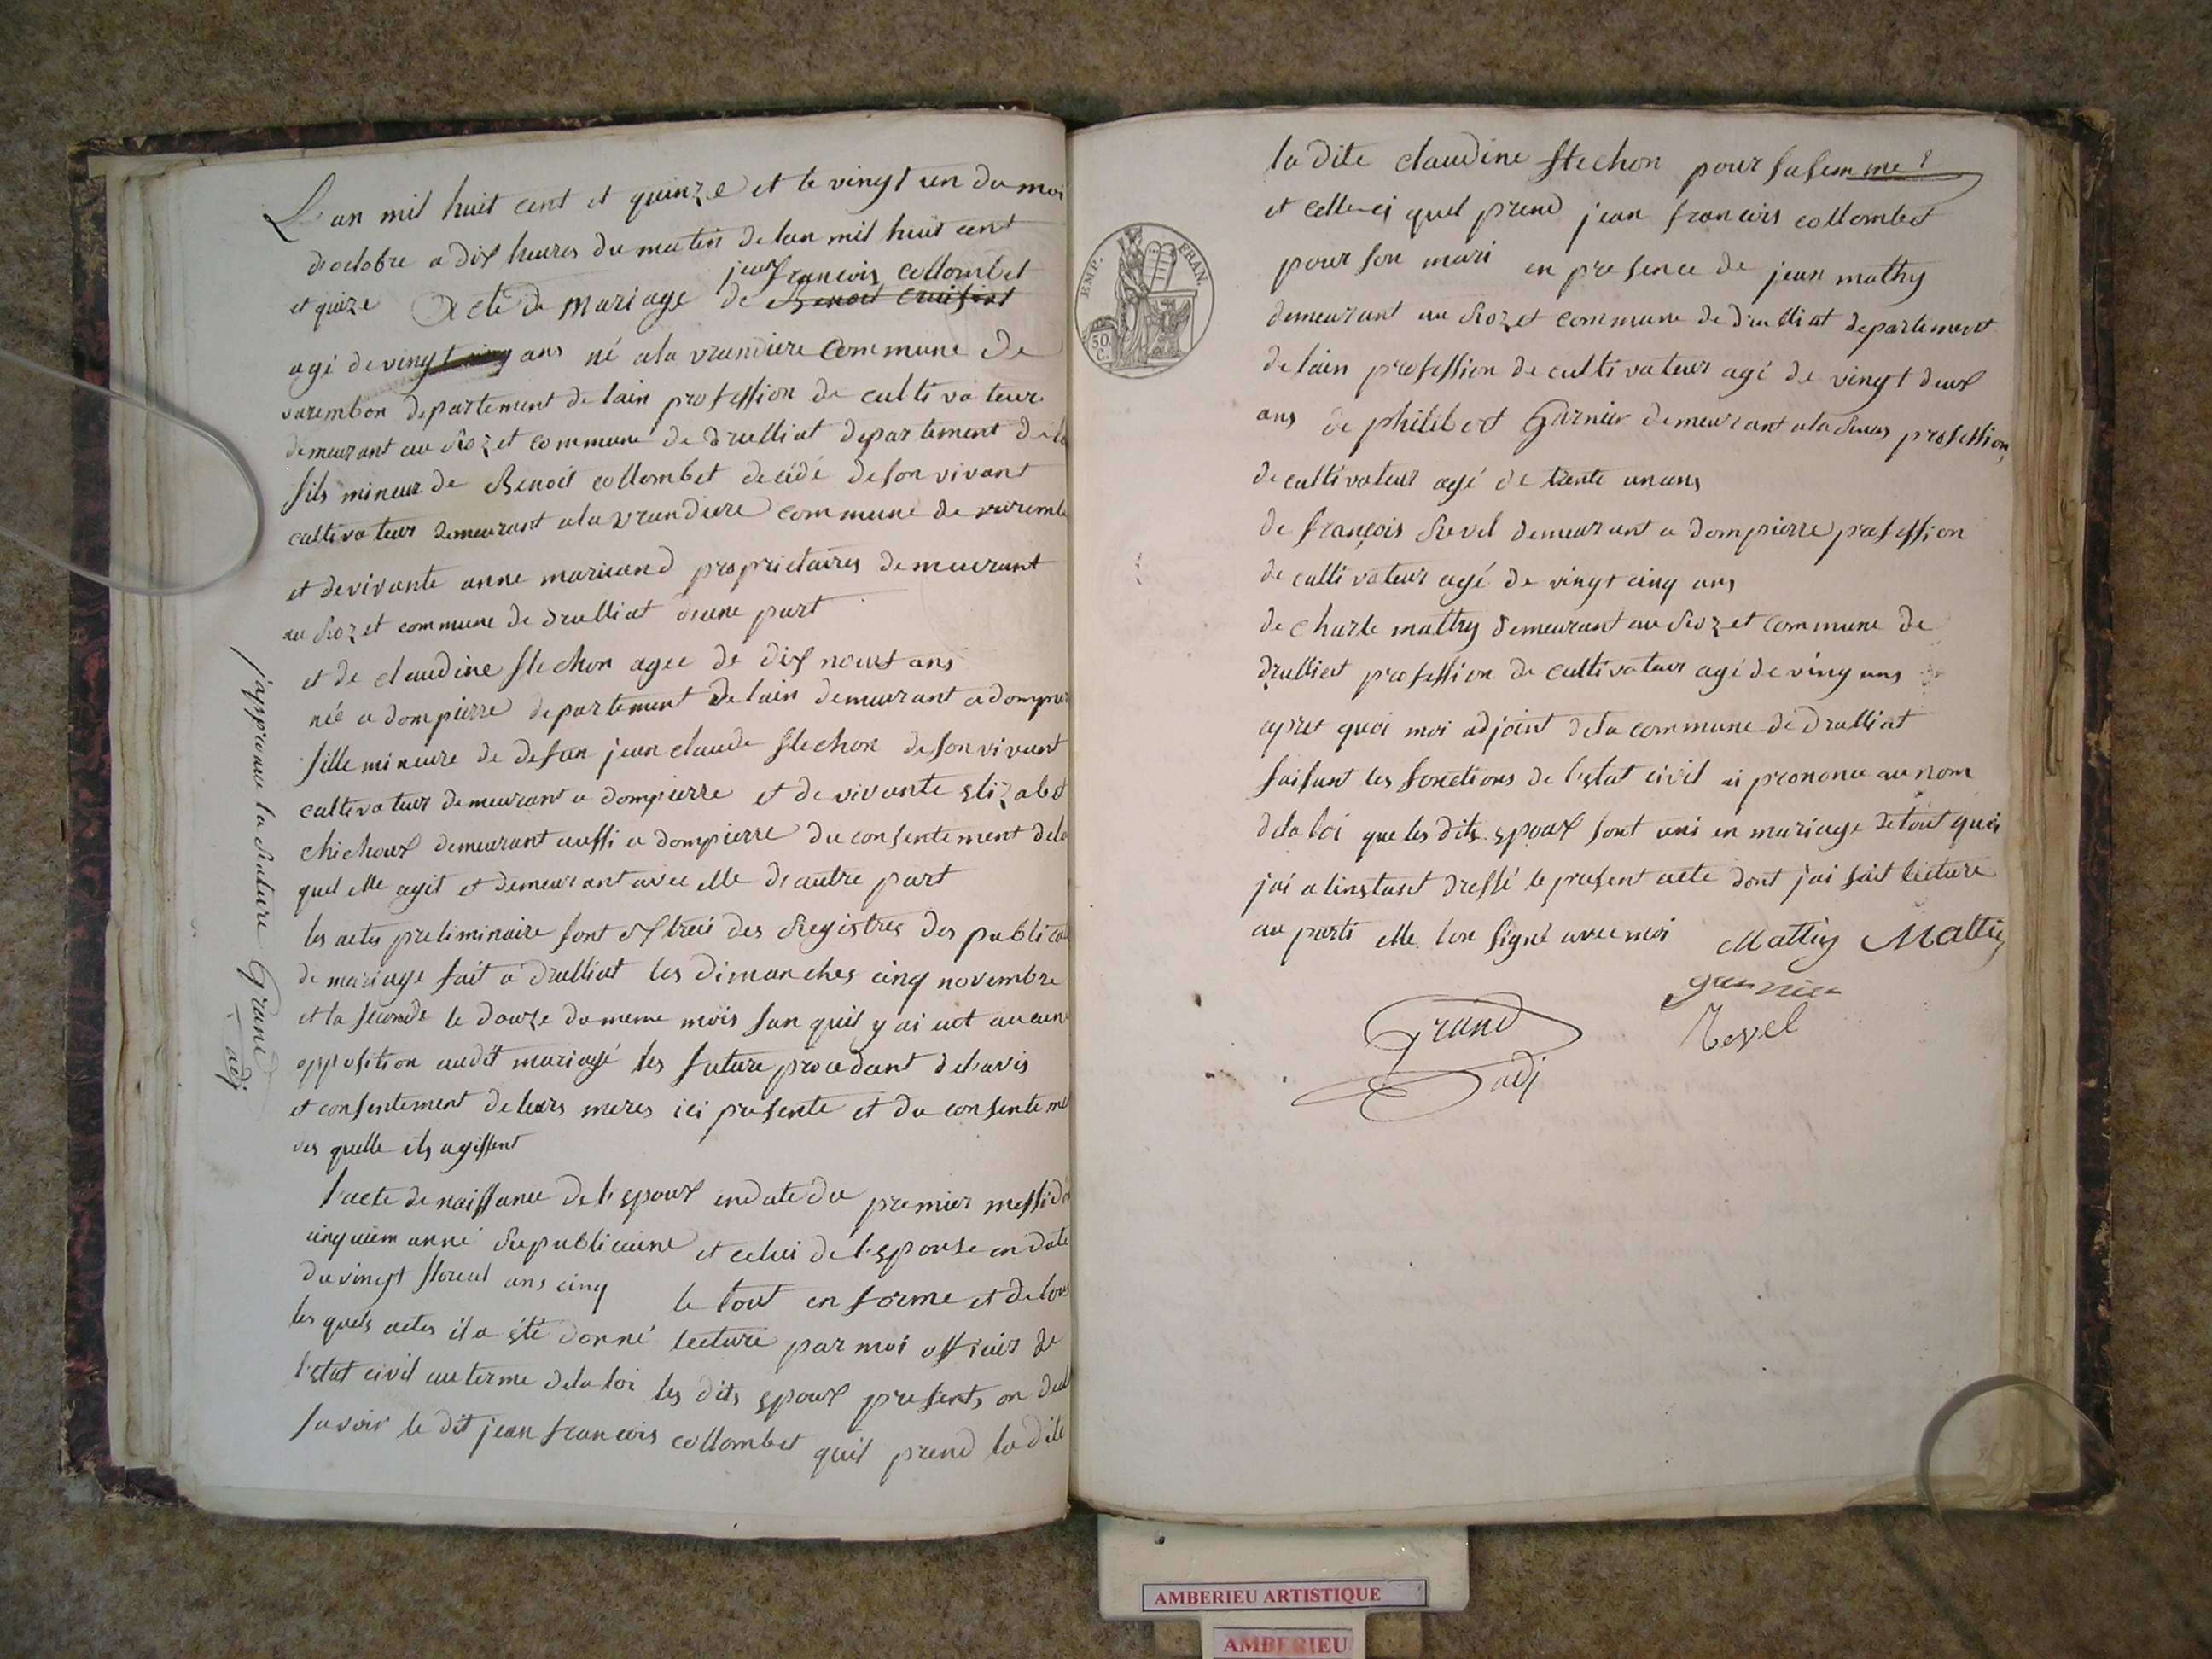 L'an mil huit cent et quinze et le vingt un du moi
d'octobre a dix heures du matin de lan mil huit cent
jean francois collombet
et quize Acte de mariage de Benoit
agé de vingt ans né a la vrandiere commune de
varembon departement de lain profession de cultivateur
demeurant au Rozet commune de druilliat departement de la
fils mineur de Benoit collombet decédé de son vivant
cultivateur demeurant a la vrandiere commune de varemb
et de vivante anne proprietaires demeurant
au Rozet commune de druilliat d'une part
et de claudine flechon agee de dix neuf ans
née a dompierre departement de lain demeurant a dompier
fille mineure de defun jean claude flechon de son vivant
cultivateur demeurant a dompierre et de vivante elizabet
chichoux demeurant aussi a dompierre du consentement dela
quel elle agit et demeurant avec elle d'autre part
les actes preliminaire sont extrai des Registres des publicat
de mariage fait a druilliat les dimanches cinq novembre
et la seconde le douze du meme mois san quil y ai eut aucune
opposition audit mariage les future procedant de l'avis
et consentement de leurs meres ici presente et du consenteme
des quelle ils agissent
l'acte de naissance de l'epoux en date du premier messido
cinquiem anné Republicaine et celui de l'epouse en date
du vingt floreal ans cinq le tout en forme et de tous
les quels actes il a été donné lecture par moi officier de
l'etat civil au terme de la loi les dits epoux presents on decl
savoir le dit jean francois collombet quil prend la dite
j'approuve la Rature Grand adj
la dite claudine flechon pour sa femme
et celle-ci quel prend jean francois collombet
pour son mari en presence de jean mathy
demeurant au Rozet commune de druilliat departement
de lain profession de cultivateur agé de vingt deux
ans de philibert Garnier demeurant a la profession
de cultivateur agé de trente un ans
de françois Revel demeurant a dompierre profession
de cultivateur agé de vingt cinq ans
de charle mathy demeurant au Rozet commune de
druilliat profession de cultivateur agé de ving ans
apret quoi moi adjoint de la commune de druilliat
faisant les fonctions de l'etat civil ai prononce au nom
de la loi que les dits epoux sont uni en mariage de tout quoi
j'ai a linstant dressé le present acte dont j'ai fait lecture
au parti elle lon signé avec moi Mathy Mathy
garnier
Grand Revel
adj
EMP. FRAN.
50
C.
AMBERIEU ARTISTIQUE
AMBERIEU